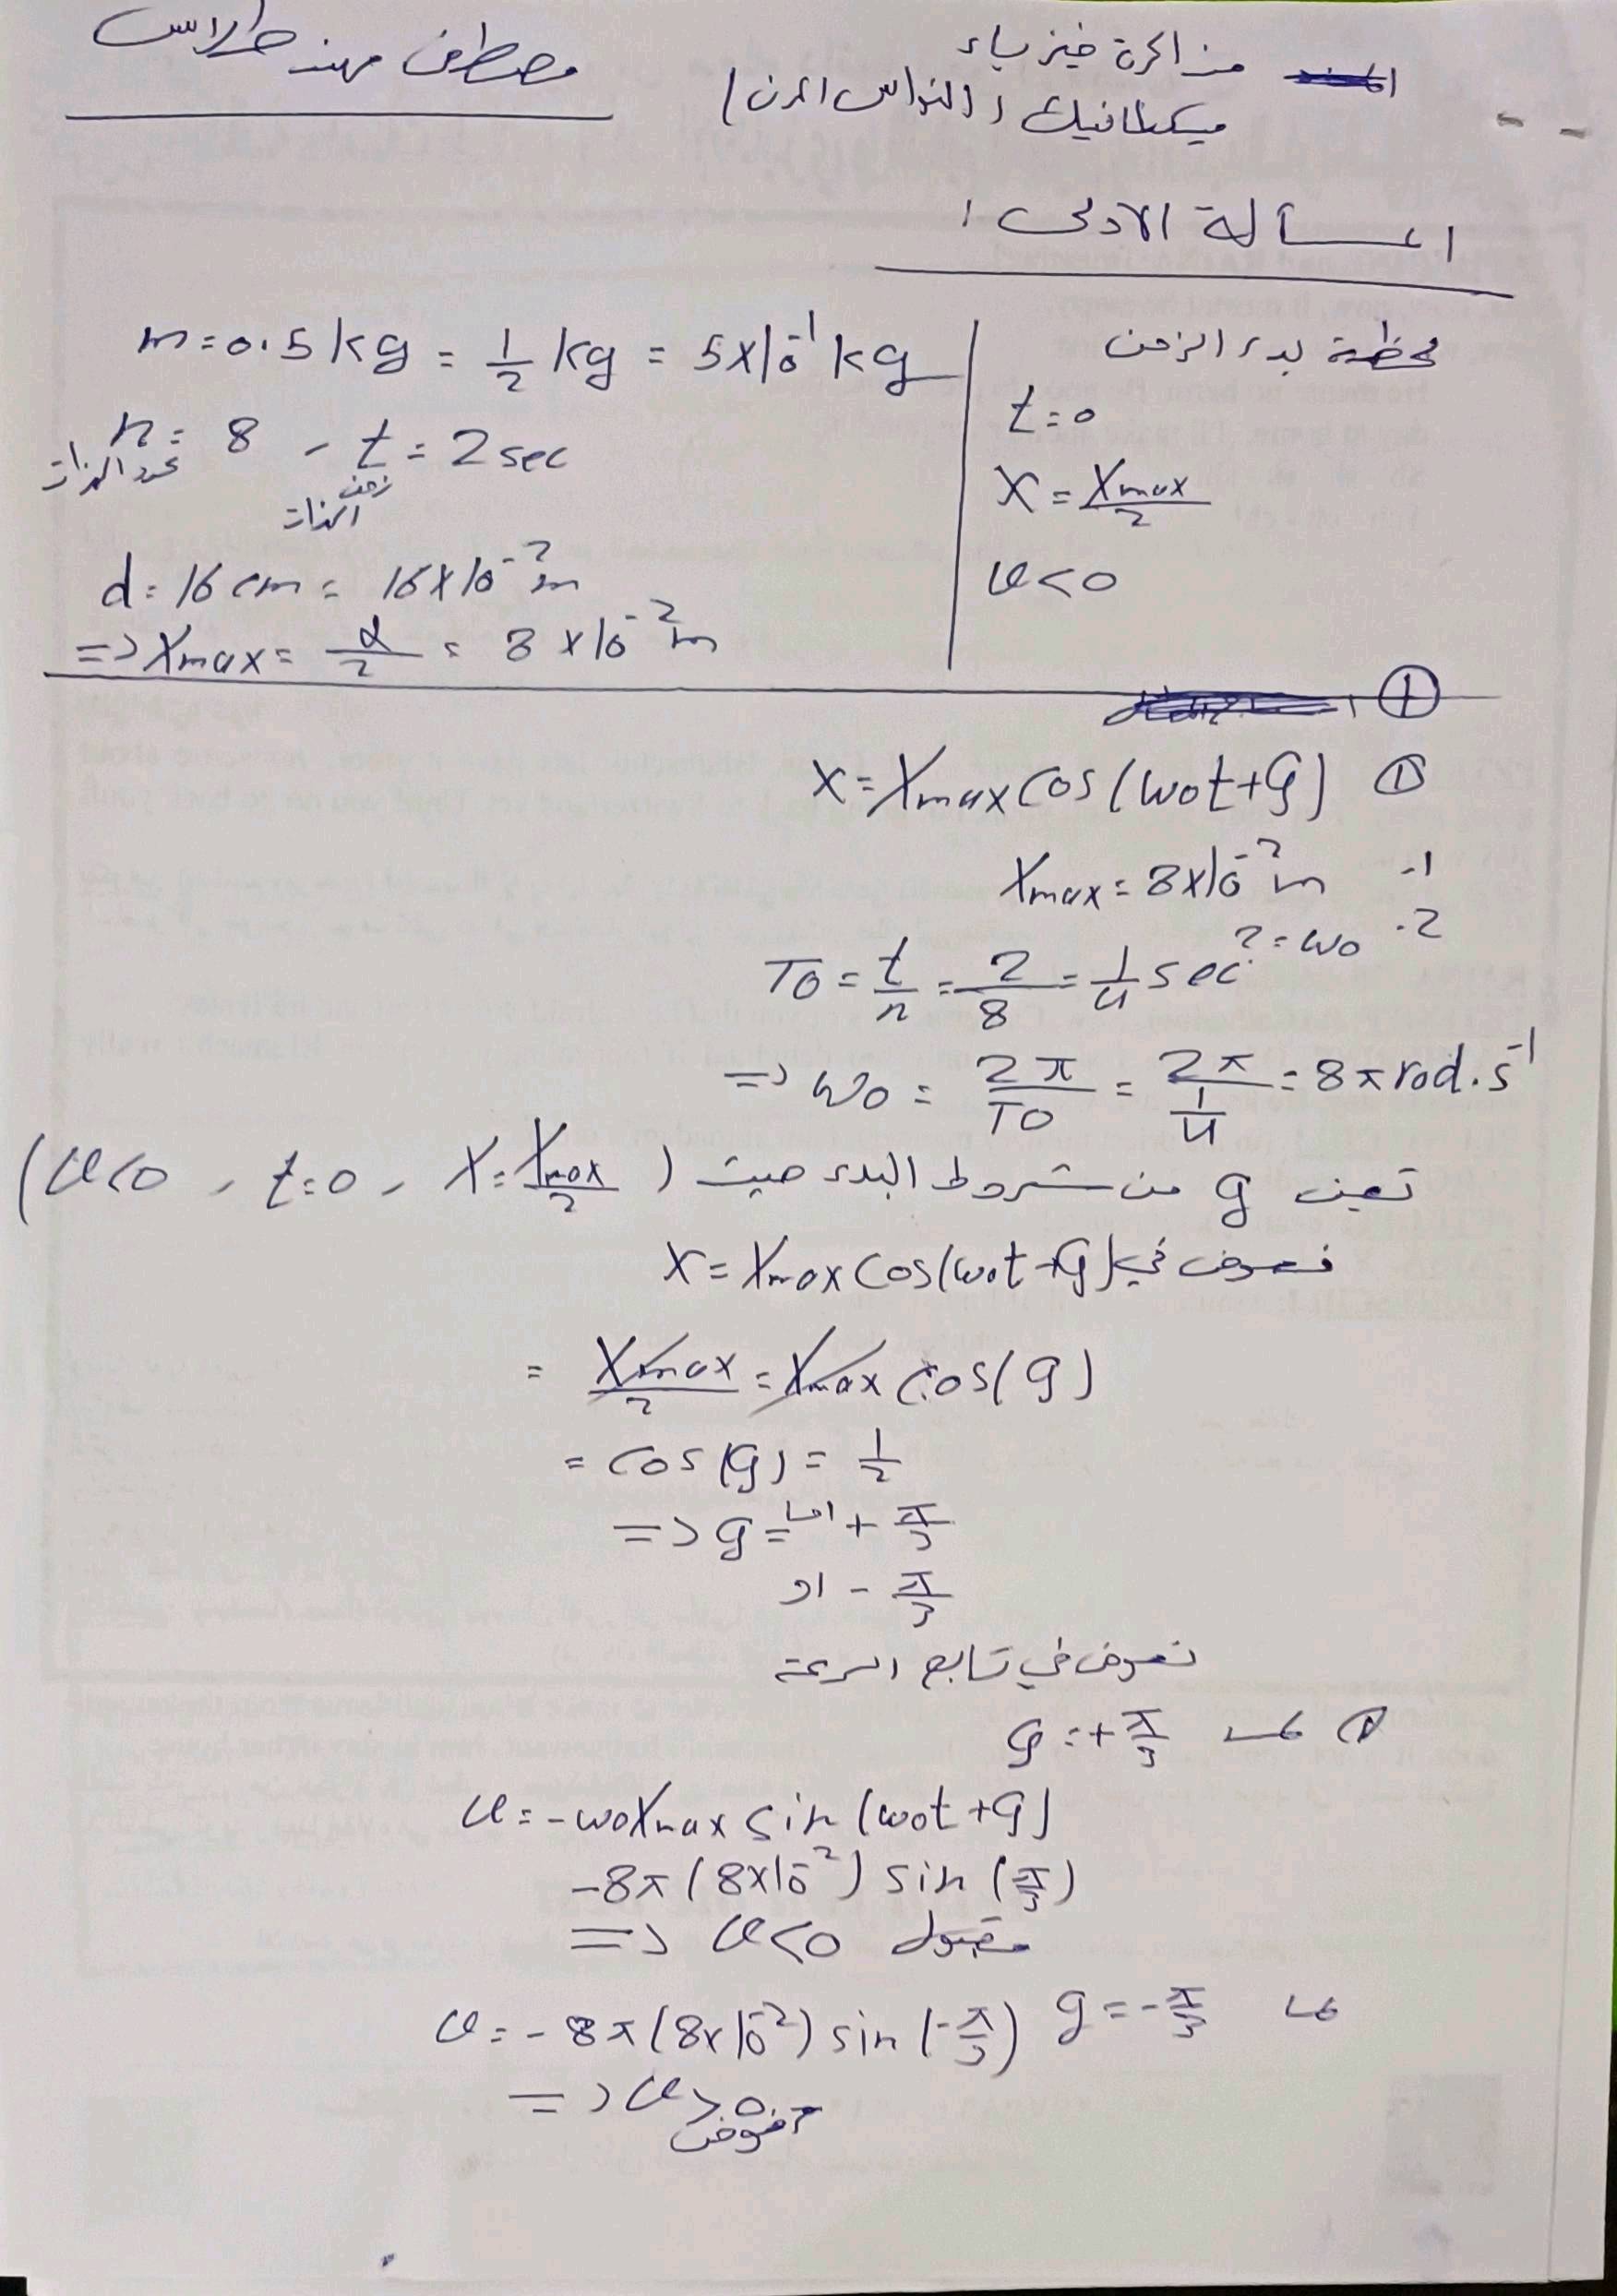 مذاكرة فيزياء
ميكانيك (النواس المرن)
مصطفى مهند طلاس
المسألة الأولى:
m = 0.5 kg = 1/2 kg = 5×10⁻¹ kg
n = 8 , t = 2 sec
عدد الهزات
زمن الهزات
d = 16 cm = 16×10⁻² m
=> Xmax = d/2 = 8×10⁻² m
لحظة بدء الزمن
t = 0
X = Xmax/2
v < 0
①
X = Xmax cos(ω0t + φ) ①
Xmax = 8×10⁻² m -1
? = ω0 -2
T0 = t/n = 2/8 = 1/4 sec
=> ω0 = 2π/T0 = 2π/(1/4) = 8π rad.s⁻¹
تعين φ من شروط البدء حيث (X = Xmax/2 , t = 0 , v < 0)
نعوض في X = Xmax cos(ω0t + φ)
= Xmax/2 = Xmax cos(φ)
= cos(φ) = 1/2
=> φ = اما + π/3
او - π/3
نعوض في تابع السرعة
① لما φ = + π/3
v = -ω0Xmax sin(ω0t + φ)
-8π(8×10⁻²) sin(π/3)
=> v < 0 مقبول
لما φ = - π/3
v = -8π(8×10⁻²) sin(-π/3)
=> v > 0
مرفوض